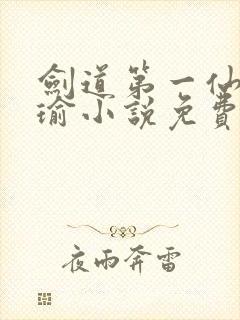 劍道第一仙
瑜小說免費
夜雨奔雷